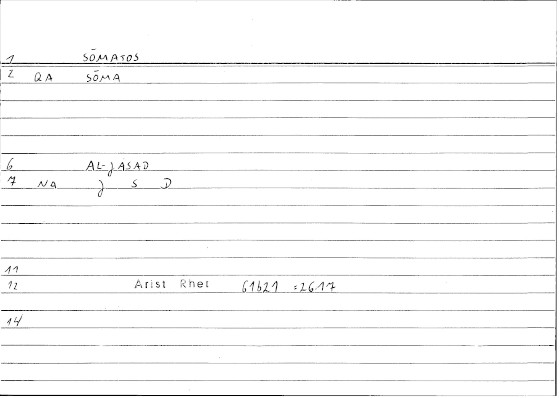 1 SŌMATOS
2 QA SŌMA
6 AL-JASAD
7 NA J S D
11
12 Arist Rhet 61b21 :2617
14